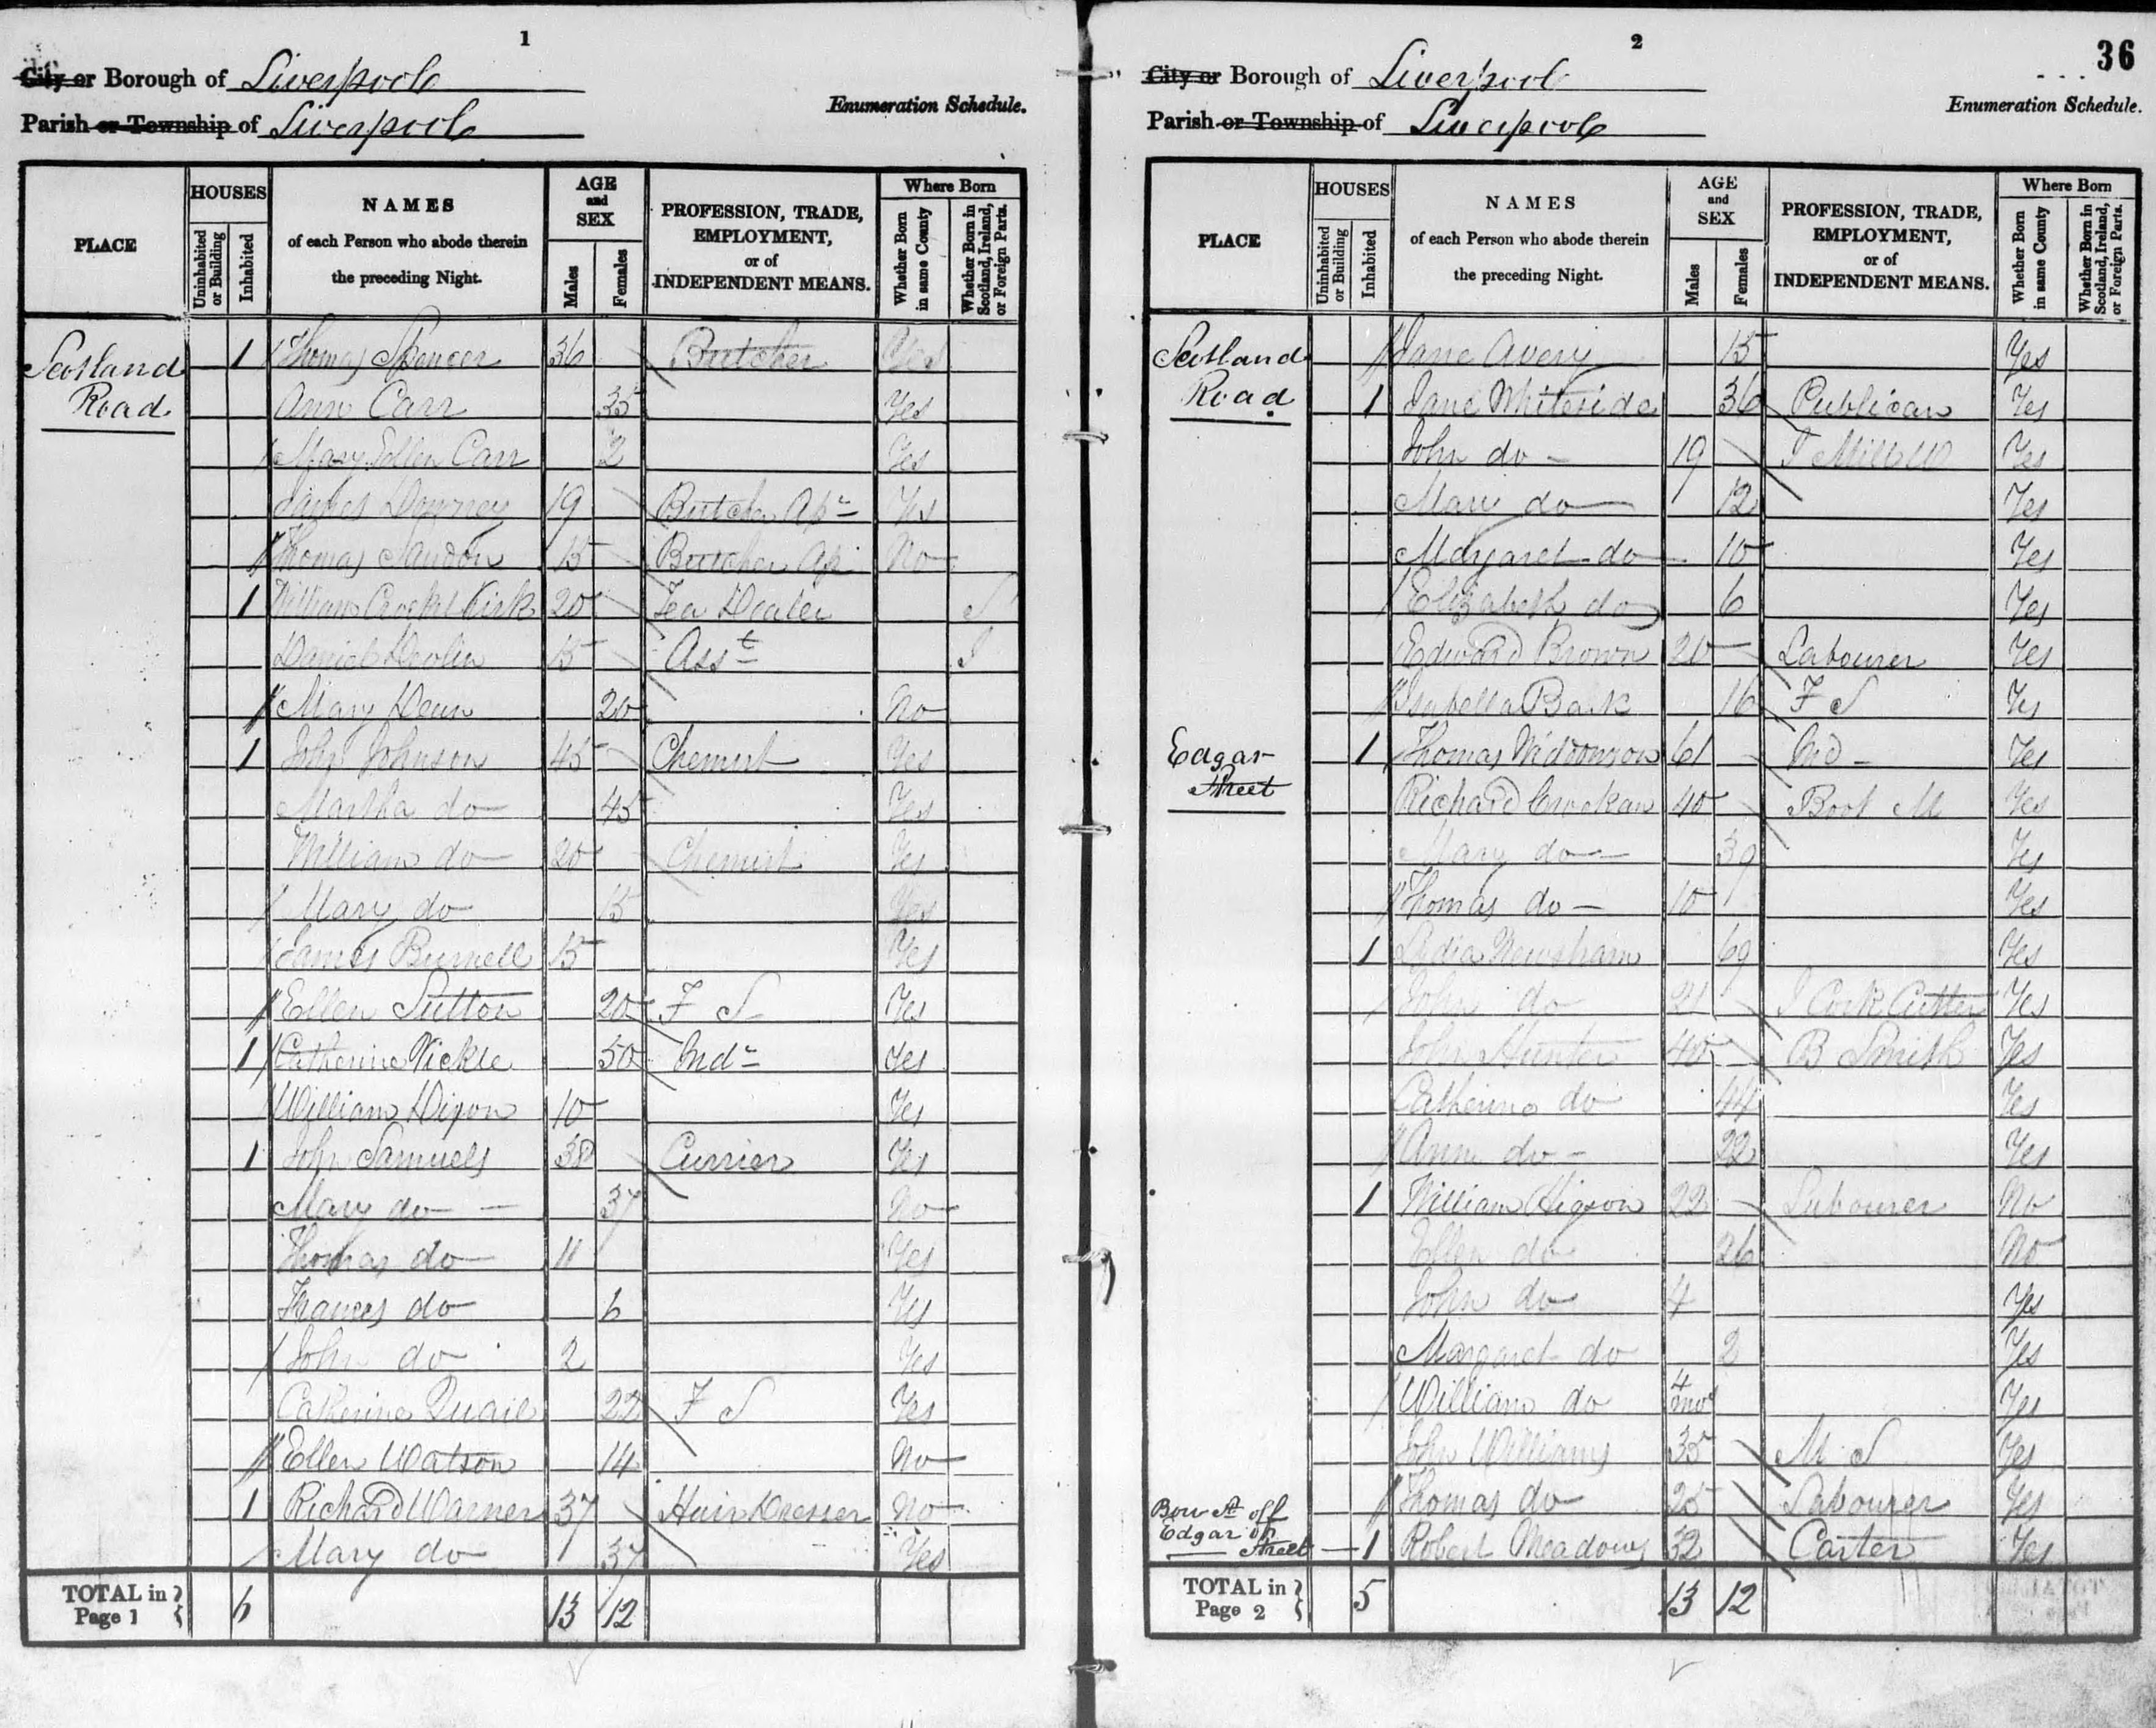 1
City or Borough of Liverpool
Enumeration Schedule.
Parish or Township of Liverpool
PLACE
HOUSES
Uninhabited or Building
Inhabited
NAMES
of each Person who abode therein
the preceding Night.
AGE and SEX
Males
Females
PROFESSION, TRADE, EMPLOYMENT, or of INDEPENDENT MEANS.
Where Born
Whether Born in same County
Whether Born in Scotland, Ireland, or Foreign Parts.
Scotland Road
1 Thomas Spencer 36 Butcher Yes
Ann Carr 35 Yes
Mary Ellen Carr 2 Yes
James Downey 19 Butcher Apr Yes
Thomas 15 Butcher Ap No
1 William Kirk 20 Tea Dealer S
Daniel Devlin 15 Asst I
Mary 20 No
1 John Johnson 45 Chemist Yes
Martha do 45 Yes
William do 20 Chemist Yes
Mary do 15 Yes
James Burnell 15 Yes
Ellen Sutton 20 F S Yes
1 Catherine Nickle 50 Ind Yes
William Dixon 10 Yes
1 John Samuels 38 Currier Yes
Mary do 37 No
Thomas do 11 Yes
Frances do 6 Yes
John do 2 Yes
Catherine Quail 22 F S Yes
Ellen Watson 14 No
1 Richard Warner 37 Hair Dresser No
Mary do 37 Yes
TOTAL in Page 1 6 13 12
2
36
City or Borough of Liverpool
Enumeration Schedule.
Parish or Township of Liverpool
PLACE
HOUSES
Uninhabited or Building
Inhabited
NAMES
of each Person who abode therein
the preceding Night.
AGE and SEX
Males
Females
PROFESSION, TRADE, EMPLOYMENT, or of INDEPENDENT MEANS.
Where Born
Whether Born in same County
Whether Born in Scotland, Ireland, or Foreign Parts.
Scotland Road
Jane Avery 15 Yes
1 Jane Whiteside 36 Publican Yes
John do 19 J Mill W Yes
Mary do 12 Yes
Margaret do 10 Yes
Elizabeth do 6 Yes
Edward Brown 20 Labourer Yes
Isabella Bark 16 F S Yes
Edgar Street
1 Thomas 61 Ind Yes
Richard 40 Boot M Yes
Mary do 39 Yes
Thomas do 10 Yes
1 Lydia Newsham 69 Yes
John do 21 J Cork Cutter Yes
John Hunter 40 B Smith Yes
Catherine do 44 Yes
Ann do 22 Yes
1 William Higson 22 Labourer No
Ellen do 26 No
John do 4 Yes
Margaret do 2 Yes
William do 4 mos Yes
John Williams 35 M S Yes
Thomas do 25 Labourer Yes
Bow St off Edgar Street
1 Robert Meadows 32 Carter Yes
TOTAL in Page 2 5 13 12